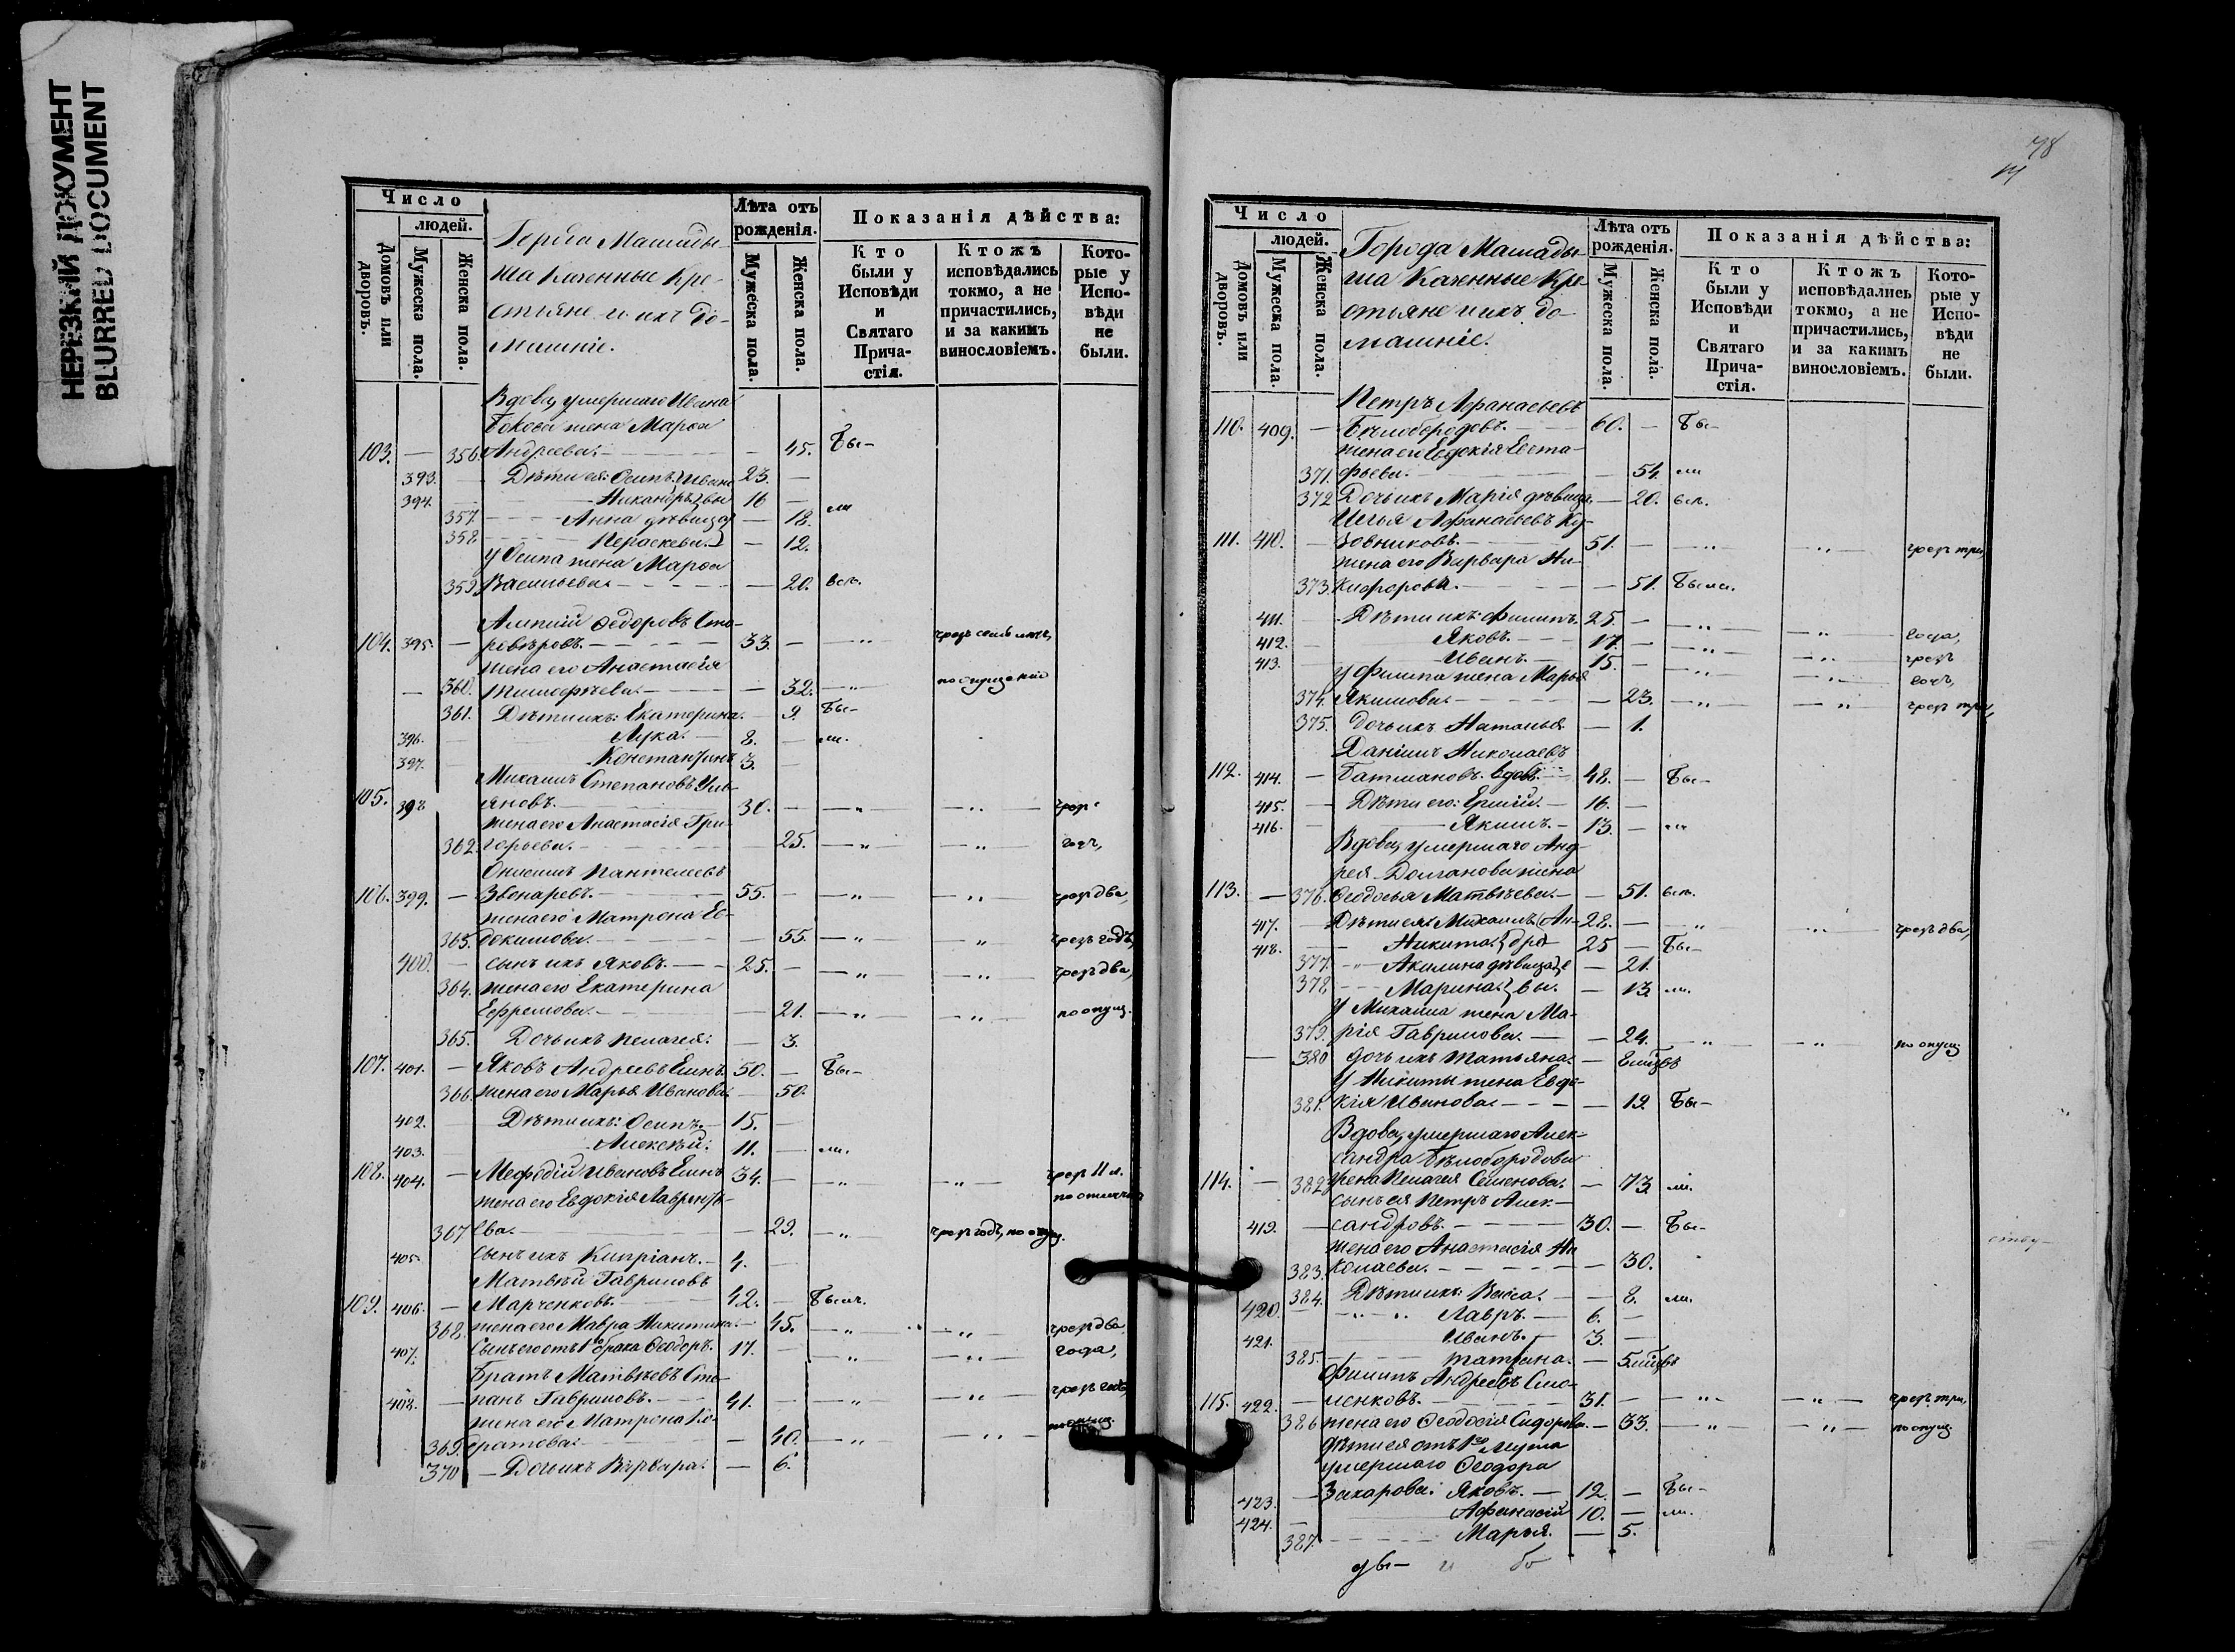 НЕРЕЗКИЙ ДОКУМЕНТ
BLURRED DOCUMENT
Число
людей.
Домовъ или дворовъ.
Мужеска пола.
Женска пола.
Города Мамады-
ша Казенные Кре-
стьяне и ихъ до-
машніе.
Лѣта отъ рожденія.
Мужеска пола.
Женска пола.
Показанія дѣйства:
Кто были у Исповѣди и Святаго Прича-стія.
Ктожъ исповѣдались токмо, а не причастились, и за какимъ винословіемъ.
Кото-рые у Испо-вѣди не были.
Вдова, умершаго Ивана
Бокова жена Марѳа
103. — 356. Андреева. — 45. Бы-
393. — Дѣти ея: Осипъ Ивано 23. —
394. — Никандръ вы 16 —
357. Анна дѣвица — 18. ли
358. Параскева. — 12.
у Осипа жена Марѳа
359. Васильева. — 20. всѣ.
Ѳедоровъ Ста-
104. 395. — ровѣровъ. 33. — — „ чрезъ семь лѣтъ,
жена его Анастасія
— 360. Тимофѣева. — 32. — „ по опущенію
361. Дѣти ихъ: Екатерина. — 9. Бы-
396. — Лука. 8. — ли.
397. — Константинъ 3. —
Михаилъ Степановъ Уль-
105. 398 яновъ. 30. — — „ — „ — чрезъ
жена его Анастасія Гри-
362. горьева. — 25. — „ — „ — годъ,
Онисимъ Пантелеевъ
106. 399. — Звонаревъ. 55. — — „ — „ — чрезъ два,
жена его Матрона Ев-
363. докимова. — 55. — „ — „ — чрезъ годъ,
400. — сынъ ихъ Яковъ. 25. — — „ — „ — чрезъ два,
364. жена его Екатерина
Ефремова. — 21. — „ — „ — по опущ.
365. Дочь ихъ Пелагея. — 3.
107. 401. — Яковъ Андреевъ Елинъ 50. — Бы-
366. жена его Марья Иванова. — 50.
402. Дѣти ихъ: Осипъ. 15. —
403. Алексѣй. 11. — ли.
108. 404. — Меѳодій Ивановъ Елинъ 34. — — „ — „ — чрезъ 11 л.
жена его Евдокія Лаврентье-
367 ва. — 29. — „ чрезъ годъ, по опущ.
405. сынъ ихъ Кипріанъ. 4. —
Матвѣй Гавриловъ
109. 406. — Марченковъ. 42. — Былъ.
368. жена его Мавра Никитина. — 45. — „ — „ — чрезъ два
407. Сынъ его отъ 1го брака Ѳеодоръ. 17. — — „ — „ — года,
Братъ Матвѣевъ Сте-
408. — панъ Гавриловъ. 41. — — „ — „ — чрезъ годъ,
жена его Матрона Ко-
369. дратова. — 40. — „ — „ — по опущ.
370 — Дочь ихъ Варвара. — 6.
78
Число
людей.
Домовъ или дворовъ.
Мужеска пола.
Женска пола.
Города Мамады-
ша Казенные Кре-
стьяне и ихъ до-
машніе.
Лѣта отъ рожденія.
Мужеска пола.
Женска пола.
Показанія дѣйства:
Кто были у Исповѣди и Святаго Прича-стія.
Ктожъ исповѣдались токмо, а не причастились, и за какимъ винословіемъ.
Кото-рые у Испо-вѣди не были.
Петръ Афанасьевъ
110. 409. — Бѣлобородовъ. 60. — Бы-
жена его Евдокія Евста-
371. фьева. — 54. ли
372 Дочь ихъ Марія дѣвица. — 20. всѣ.
Илья Афанасьевъ Ку-
111. 410. — зовниковъ. 51. — — „ — „ — чрезъ три,
жена его Варвара Ни-
373. кифорова. — 51. Была.
411. — Дѣти ихъ: Филипъ. 25. — — „ — „ — года,
412. — Яковъ. 17. — — „ — „ — чрезъ
413. Иванъ. 15. — — „ — „ — годъ,
у Филипа жена Марья
374. Якимова. — 23. — „ — „ — чрезъ три,
375. дочь ихъ Наталья — 1.
Даніилъ Николаевъ
112. 414. — Батмановъ. вдовъ 48. — Бы-
415. — Дѣти его: Ермій. 16. —
416. — Якимъ. 13. — ли
Вдова, умершаго Анд-
рея Долганова жена
113. — 376. Ѳеодосья Матвѣева. — 51. всѣ.
417. — Дѣти ея: Михаилъ Ан- 28. — — „ — „ — чрезъ два,
418. — Никита дре 25 — Бы-
377. „ Акилина дѣвица е — 21.
378 Марина вы. — 13. ли.
У Михаила жена Ма-
379. рія Гаврилова. — 24. — „ — „ — по опущ
— 380 дочь ихъ Татьяна. — 8 мѣсцъ
У Никиты жена Евдо-
381. кія Иванова. — 19. Бы-
Вдова, умершаго Алек-
сандра Бѣлобородова
114. — 382 жена Пелагея Семенова. — 73. ли.
сынъ ея Петръ Алек-
419. — сандровъ. 30. — Бы-
жена его Анастасія Ни
383. колаева. — 30.
384. Дѣти ихъ: Васса. — 8. ли.
420. — „ „ Лавръ. 6. —
421. Иванъ. 3. —
385. Татьяна. — 5. мѣсцъ
Филипъ Андреевъ Смо-
115. 422. — ленковъ. 31. — — „ — „ — чрезъ три,
386 жена его Ѳеодосія Сидорова. — 33. — „ — „ — по опущ
дѣти ея отъ 1го мужа
умершаго Ѳеодора
423. — Захарова: Яковъ. 12. — Бы-
424. — Афанасій 10. — ли.
387. Марья. — 5.